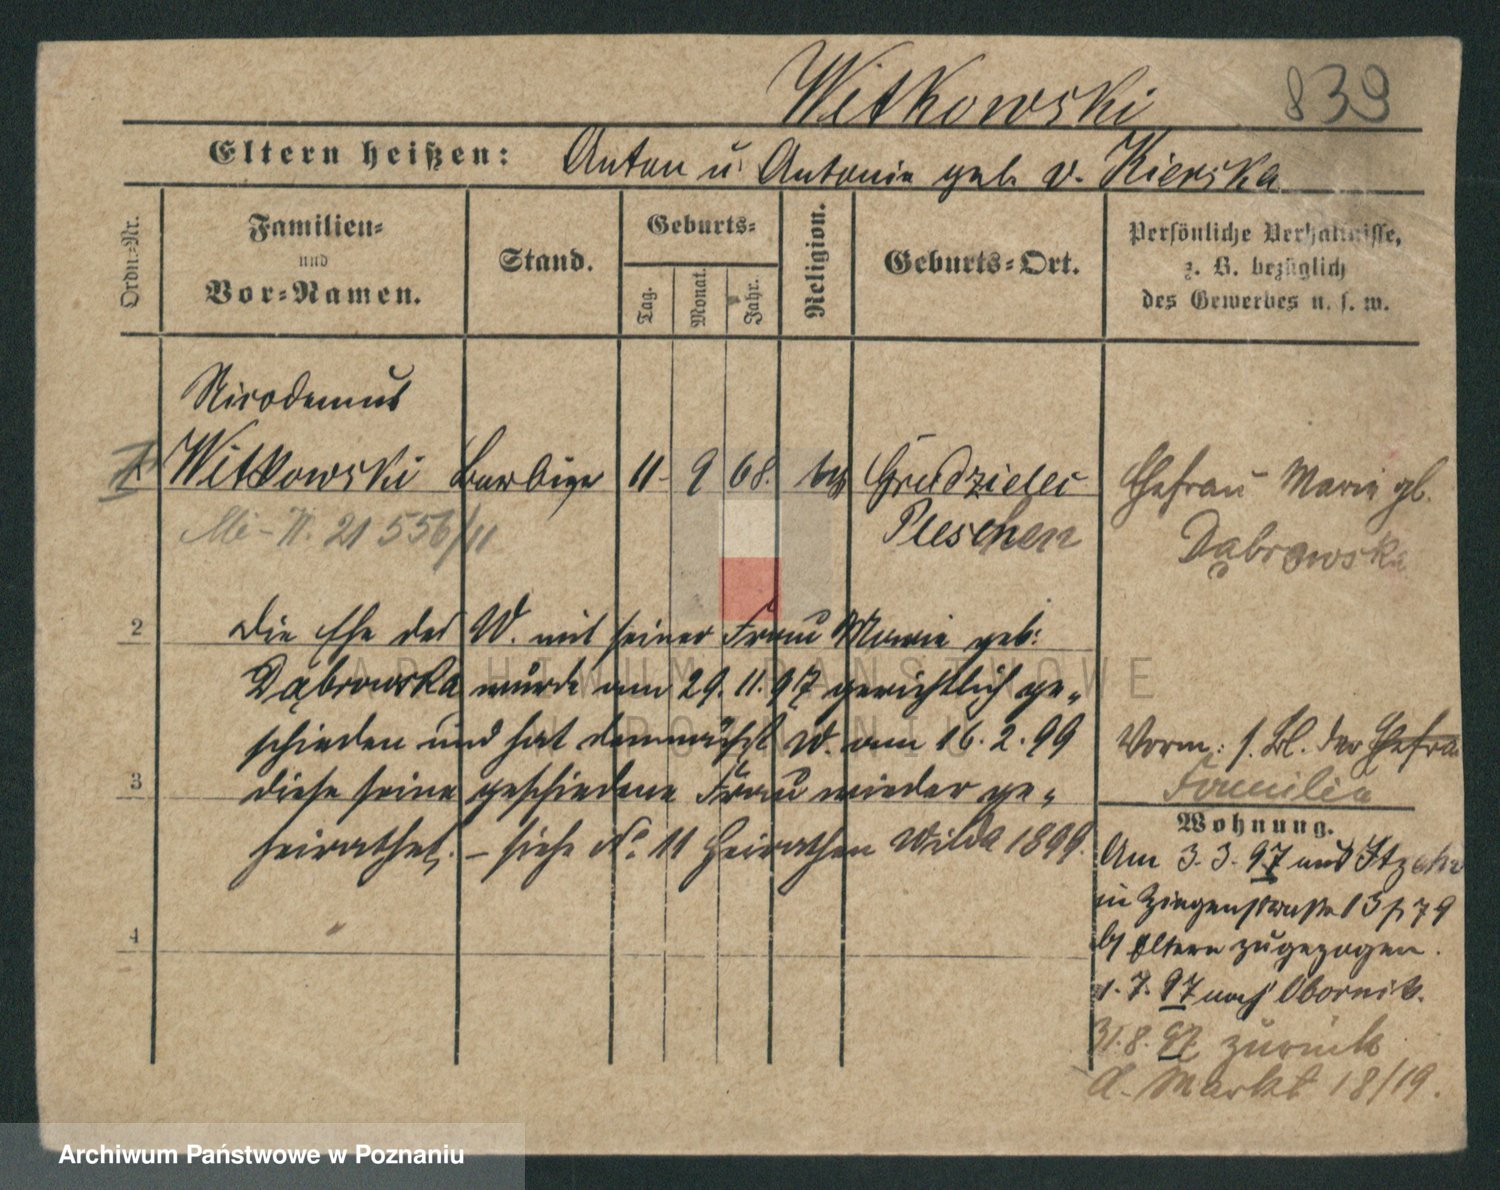 Witkowski 839
Eltern heißen: Anton u. Antonie geb. v. Kierska
Ordn.-Nr.
Familien-
und
Vor-Namen.
Stand.
Geburts-
Tag.
Monat.
Jahr.
Religion.
Geburts-Ort.
Persönliche Verhältnisse,
z. B. bezüglich
des Gewerbes u. s. w.
Nicodemus
1 Witkowski Barbier 11 9 68. Grudzielec
Pleschen
21 556/11
Ehefrau Marie gb.
Dąbrowska
2 Die Ehe des W. mit seiner Frau Marie geb:
Dąbrowska wurde am 29.11.97 gerichtlich ge-
schieden und hat demnächst W. am 16.2.99
3 diese seine geschiedene Frau wieder ge-
heirathet. – siehe No. 11 Heirathen Wilda 1899.
4
Vorm: s. Bl. der Ehefrau
Familie
Wohnung.
Am 3.3.97 aus
in Ziegenstrasse 13 79
Eltern zugezogen.
1.7.97 nach Obornik.
31.8.97 zurück
A. Markt 18/19.
ARCHIWUM PAŃSTWOWE
W POZNANIU
Archiwum Państwowe w Poznaniu